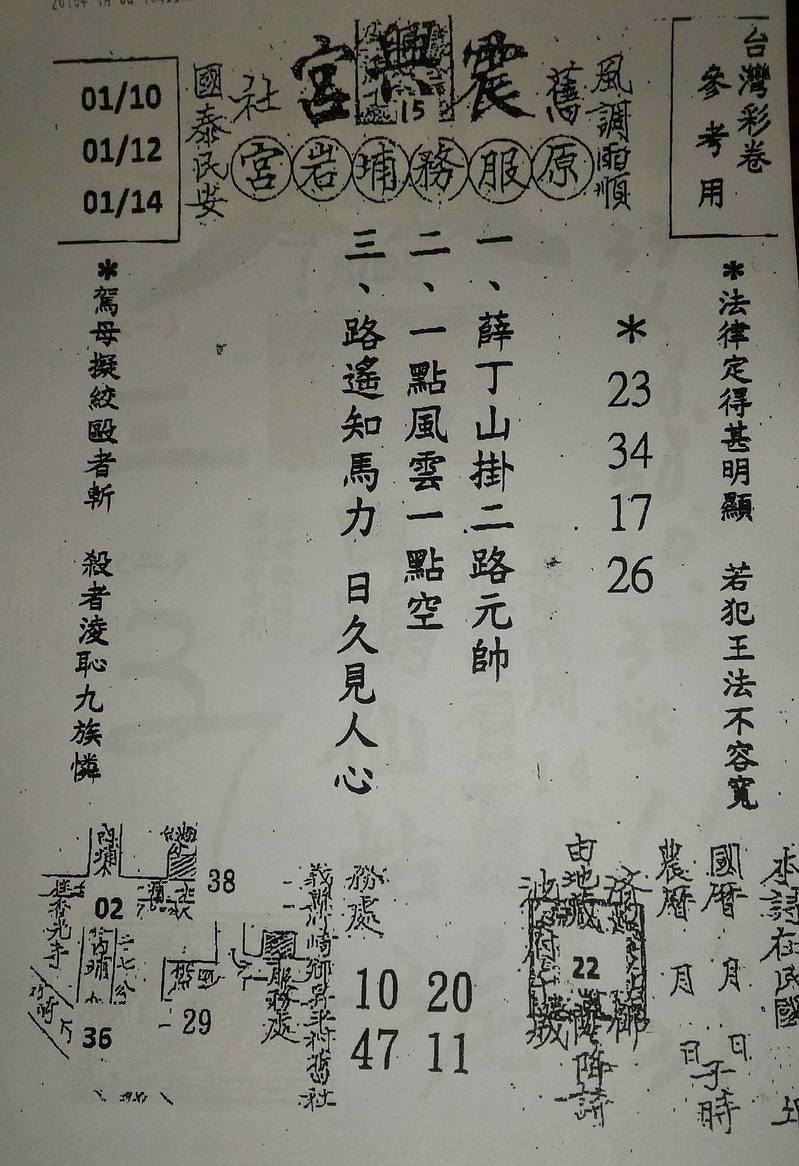 台灣彩卷
參考用
風調雨順
舊
震興宮
15
社
國泰民安
01/10
01/12
01/14
原服務埔岩宮
*法律定得甚明顯 若犯王法不容寬
*
23
34
17
26
一、薛丁山掛二路元帥
二、一點風雲一點空
三、路遙知馬力 日久見人心
*駕母擬絞毆者斬 殺者凌恥九族憐
本詩在民國
國曆 月 日
農曆 月 日
子時
由地藏
22
降詩
務處
10 20
47 11
服務處
38
02
內埔
36
29